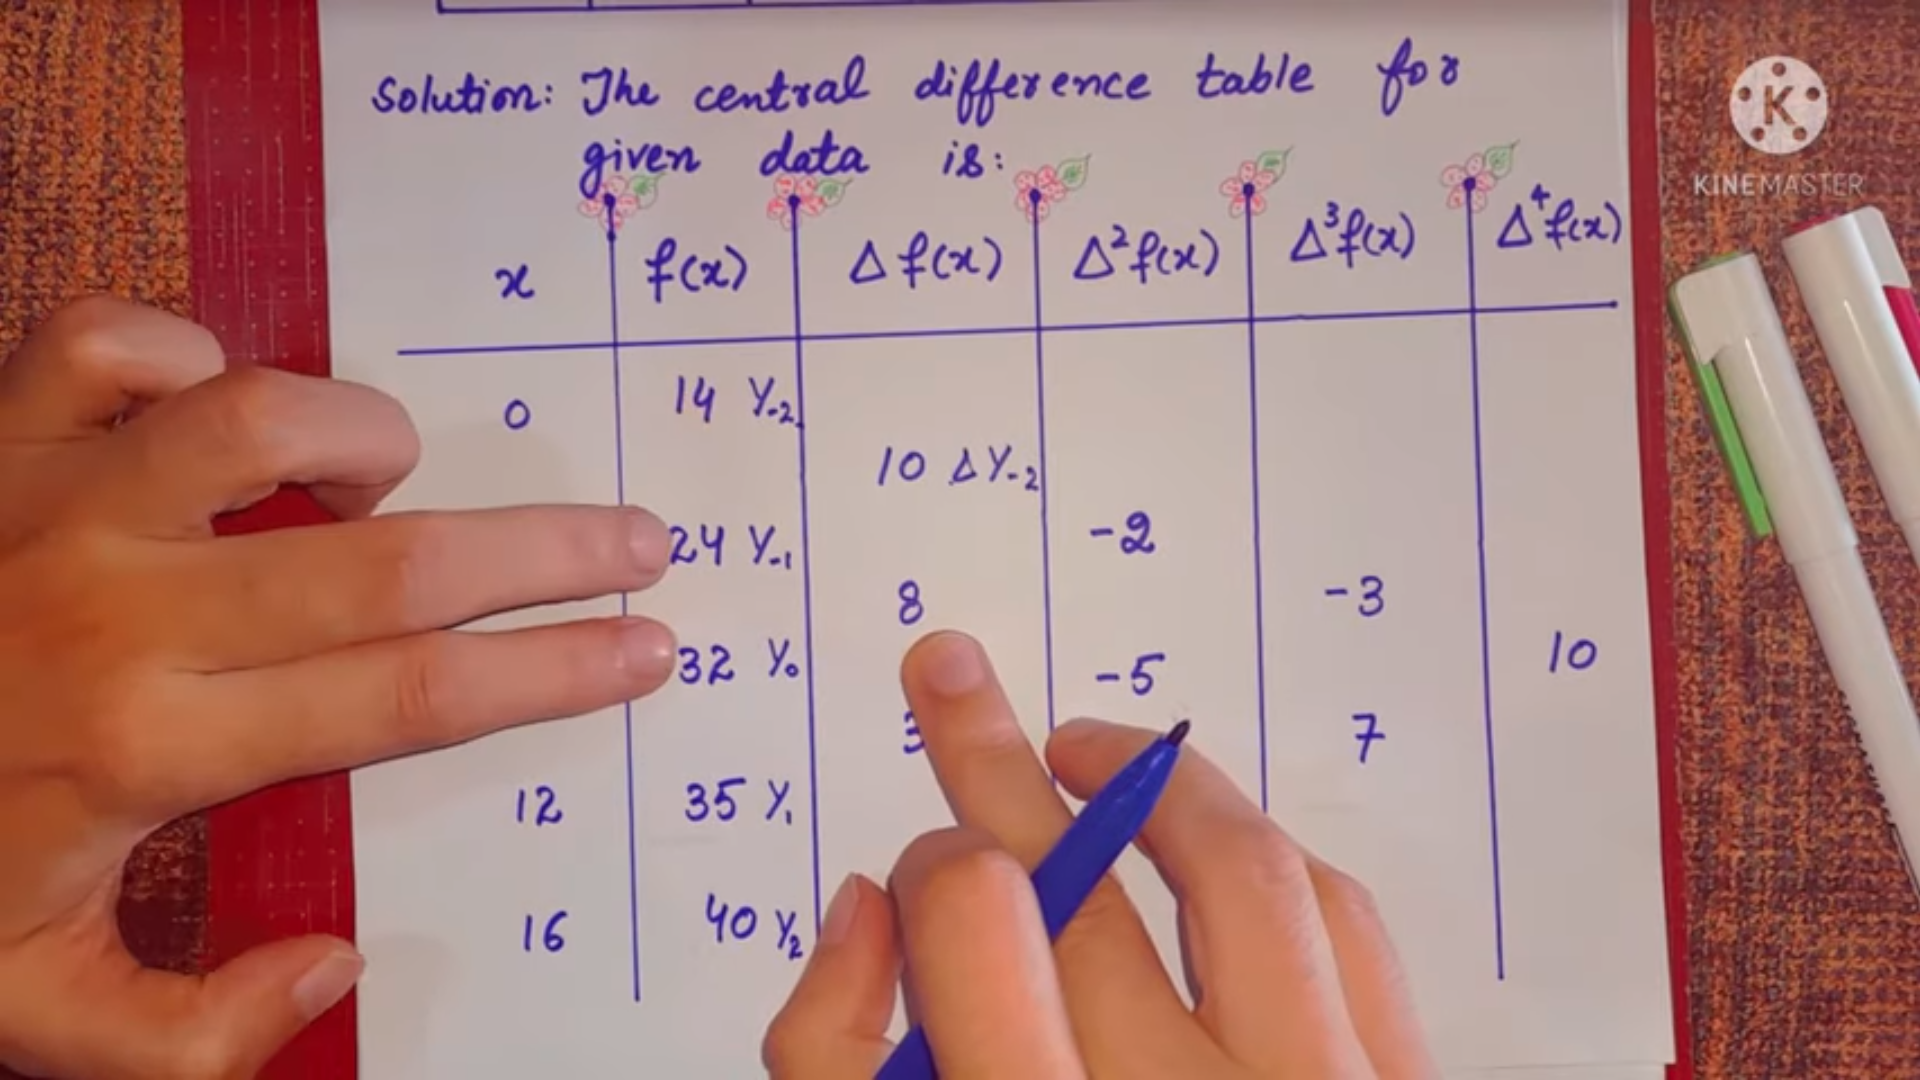 Solution: The central difference table for
given data is:
x f(x) Δf(x) Δ²f(x) Δ³f(x) Δ⁴f(x)
0 14 Y₋₂
10 ΔY₋₂
24 Y₋₁ -2
8 -3
32 Y₀ -5 10
3 7
12 35 Y₁
16 40 Y₂
K
KINEMASTER